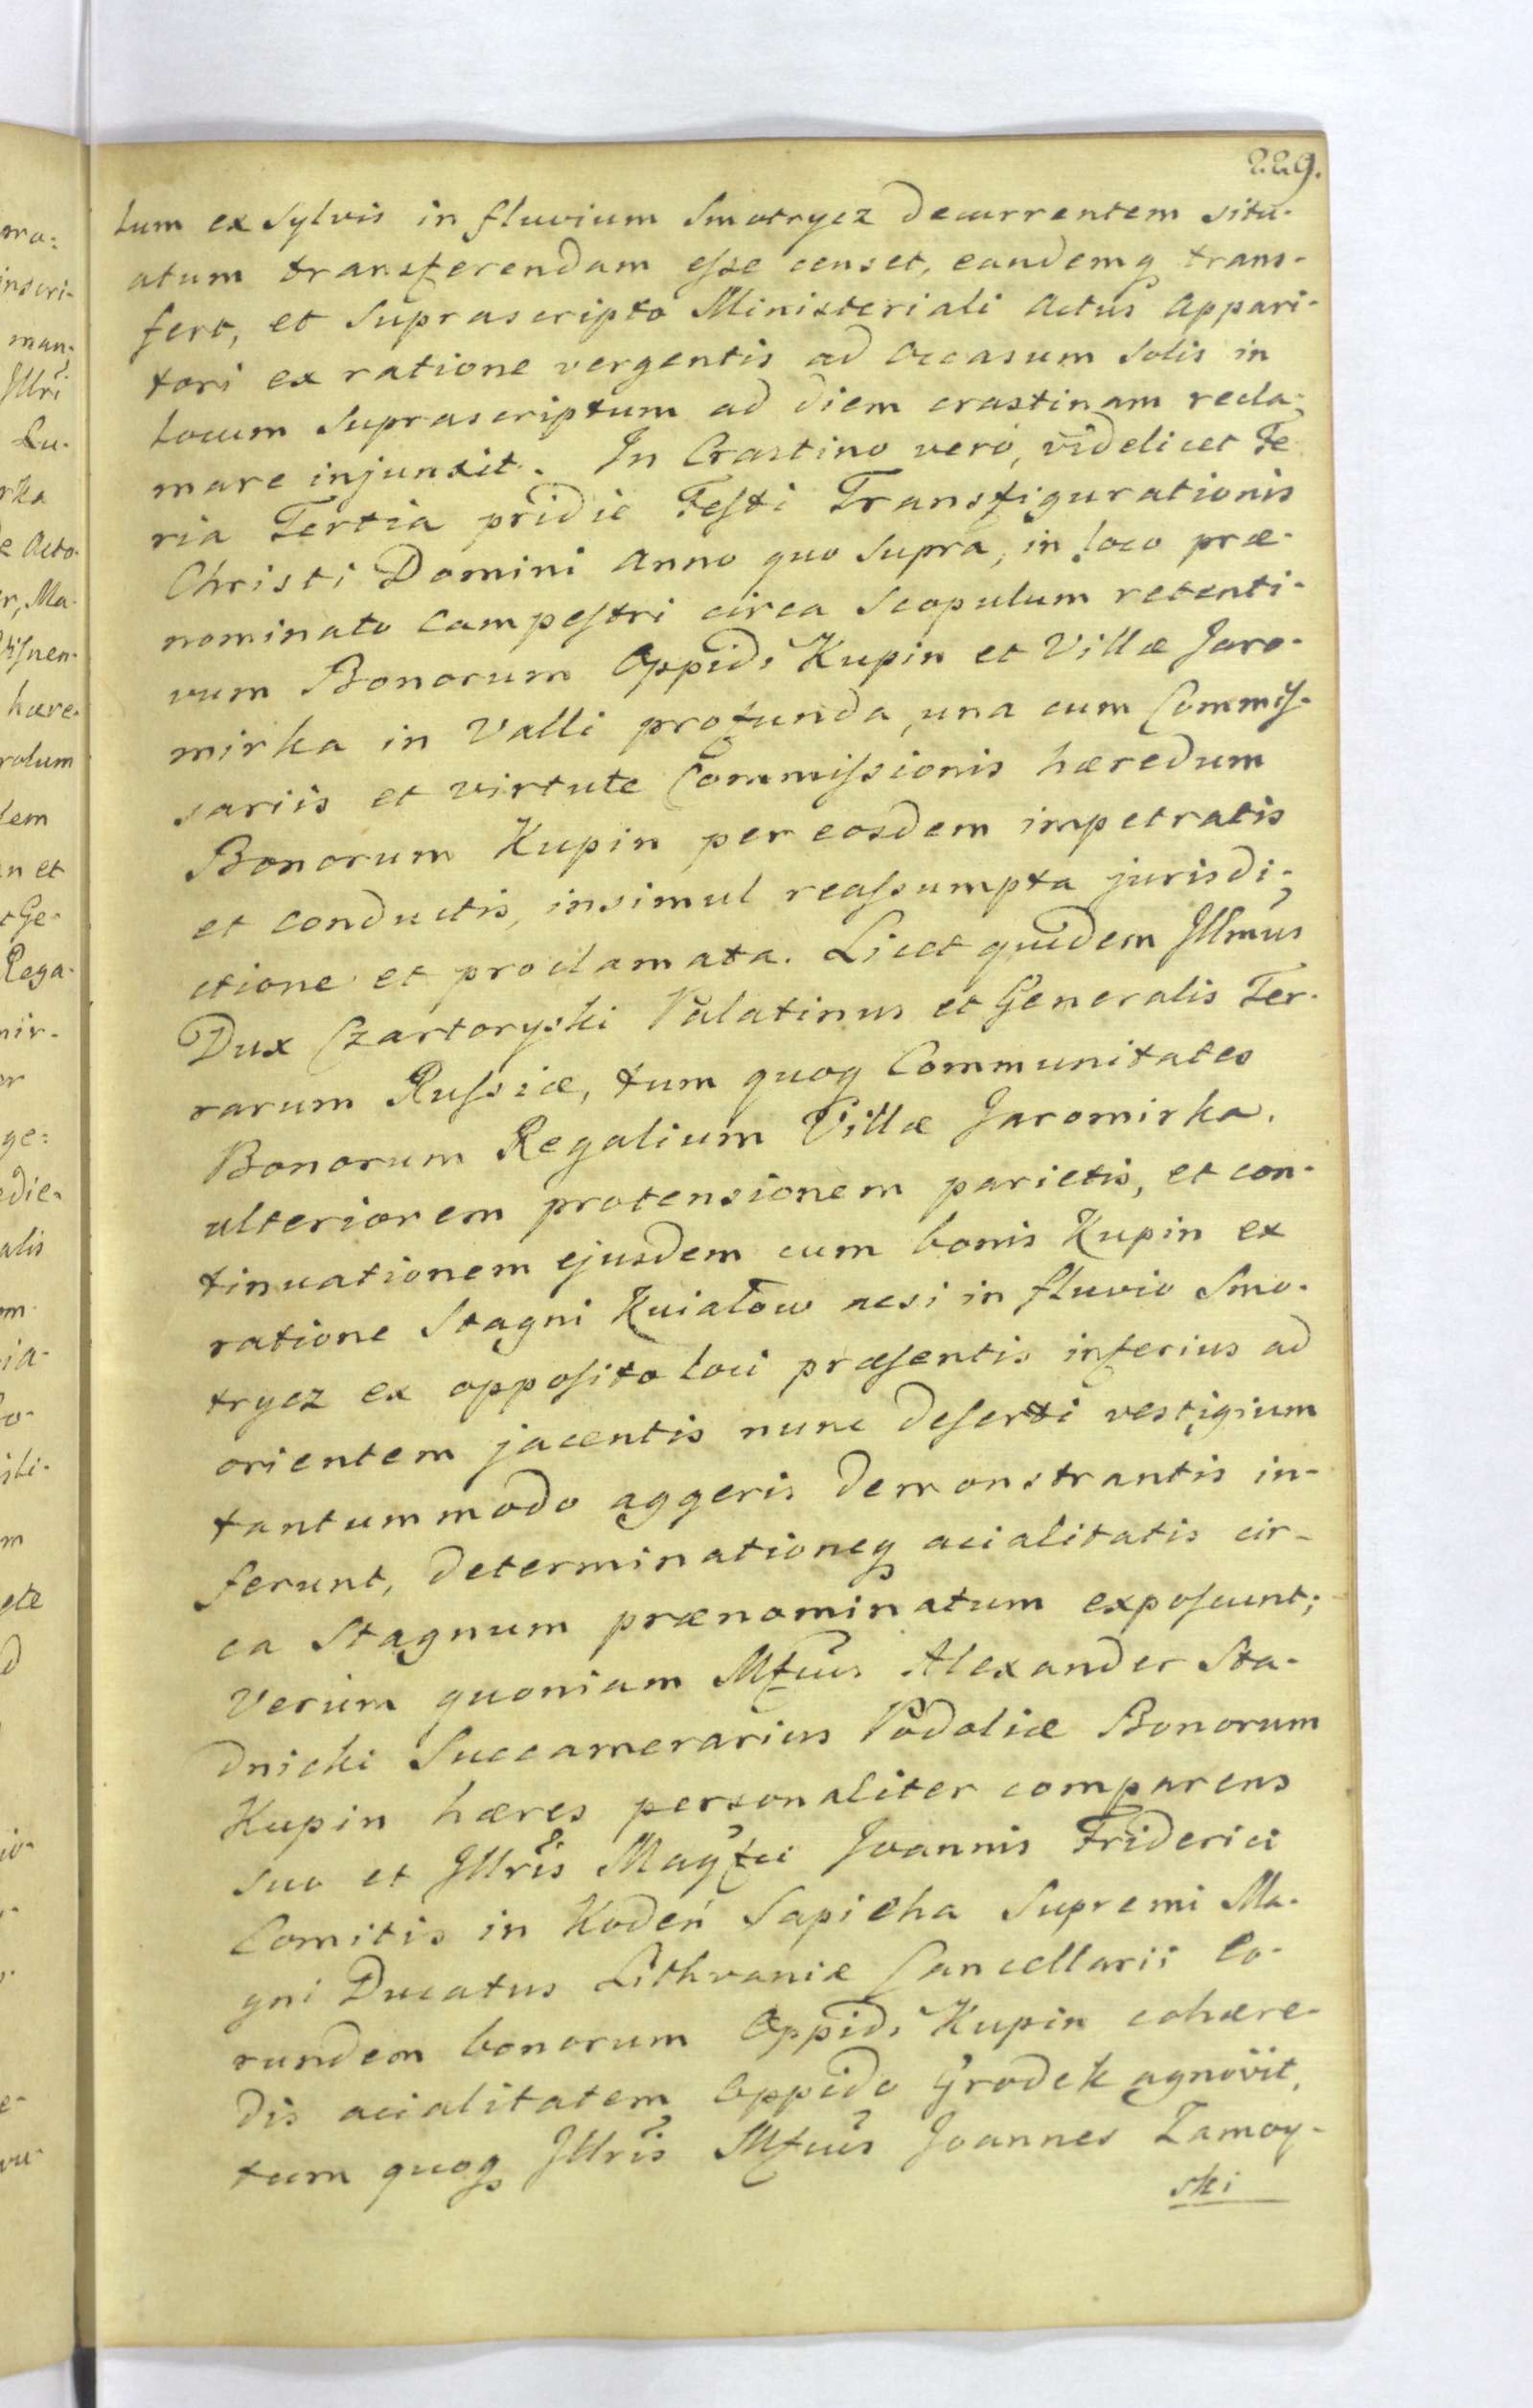 229.
tum ex Sylvis in fluvium Smotrycz decurrentem situ-
atum transferendam esse censet, eandemq trans-
fert, et Suprascripto Ministeriali Actus Appari-
tori ex ratione vergentis ad Occasum Solis in
Locum Suprascriptum ad diem crastinam recla-
mare injunxit. In Crastino verò, videlicet Fe
ria Tertia pridie Festi Transfigurationis
Christi Domini Anno quo Supra, in loco præ-
nominato Campestri circa Scopulum retenti-
vum Bonorum Oppidi Kupin et Villæ Jaro-
mirka in Valli profunda, una cum Commis-
sariis et virtute Commissionis hæredum
Bonorum Kupin per eosdem impetratis
et conductis, insimul reassumpta jurisdi-
ctione et proclamata. Licet quidem Illmus
Dux Czartoryski Palatinus et Generalis Ter-
rarum Russiæ, tum quoq Communitates
Bonorum Regalium Villæ Jaromirka.
ulteriorem protensionem parietis, et con-
tinuationem ejusdem cum bonis Kupin ex
ratione Stagni Kuiatow acsi in fluvio Smo-
trycz ex opposito loci præsentis inferius ad
orientem jacentis nunc deserti vestigium
tantummodo aggeris demonstrantis in-
ferunt, determinationeq acialitatis cir-
ca Stagnum prænominatum exposcunt;
Verùm quoniam Mfcus Alexander Sta-
dnicki Succamerarius Podoliæ Bonorum
Kupin hæres personaliter comparens
suo et Illris Magfci Joannis Friderici
Comitis in Kodeń Sapieha Supremi Ma-
gni Ducatus Lithvaniæ Cancellarii Eo-
rundem bonorum Oppidi Kupin cohære-
dis acialitatem Oppido Grodek agnovit,
tum quoq Illris Mfcus Joannes Zamoy-
ski
ma:
inscri-
man-
Illri
Lu-
rka
e Acto-
r, Ma-
hære-
rolum
dem
en et
et Ge-
Rega-
mir-
er
ge:
edie-
alis
om
ia-